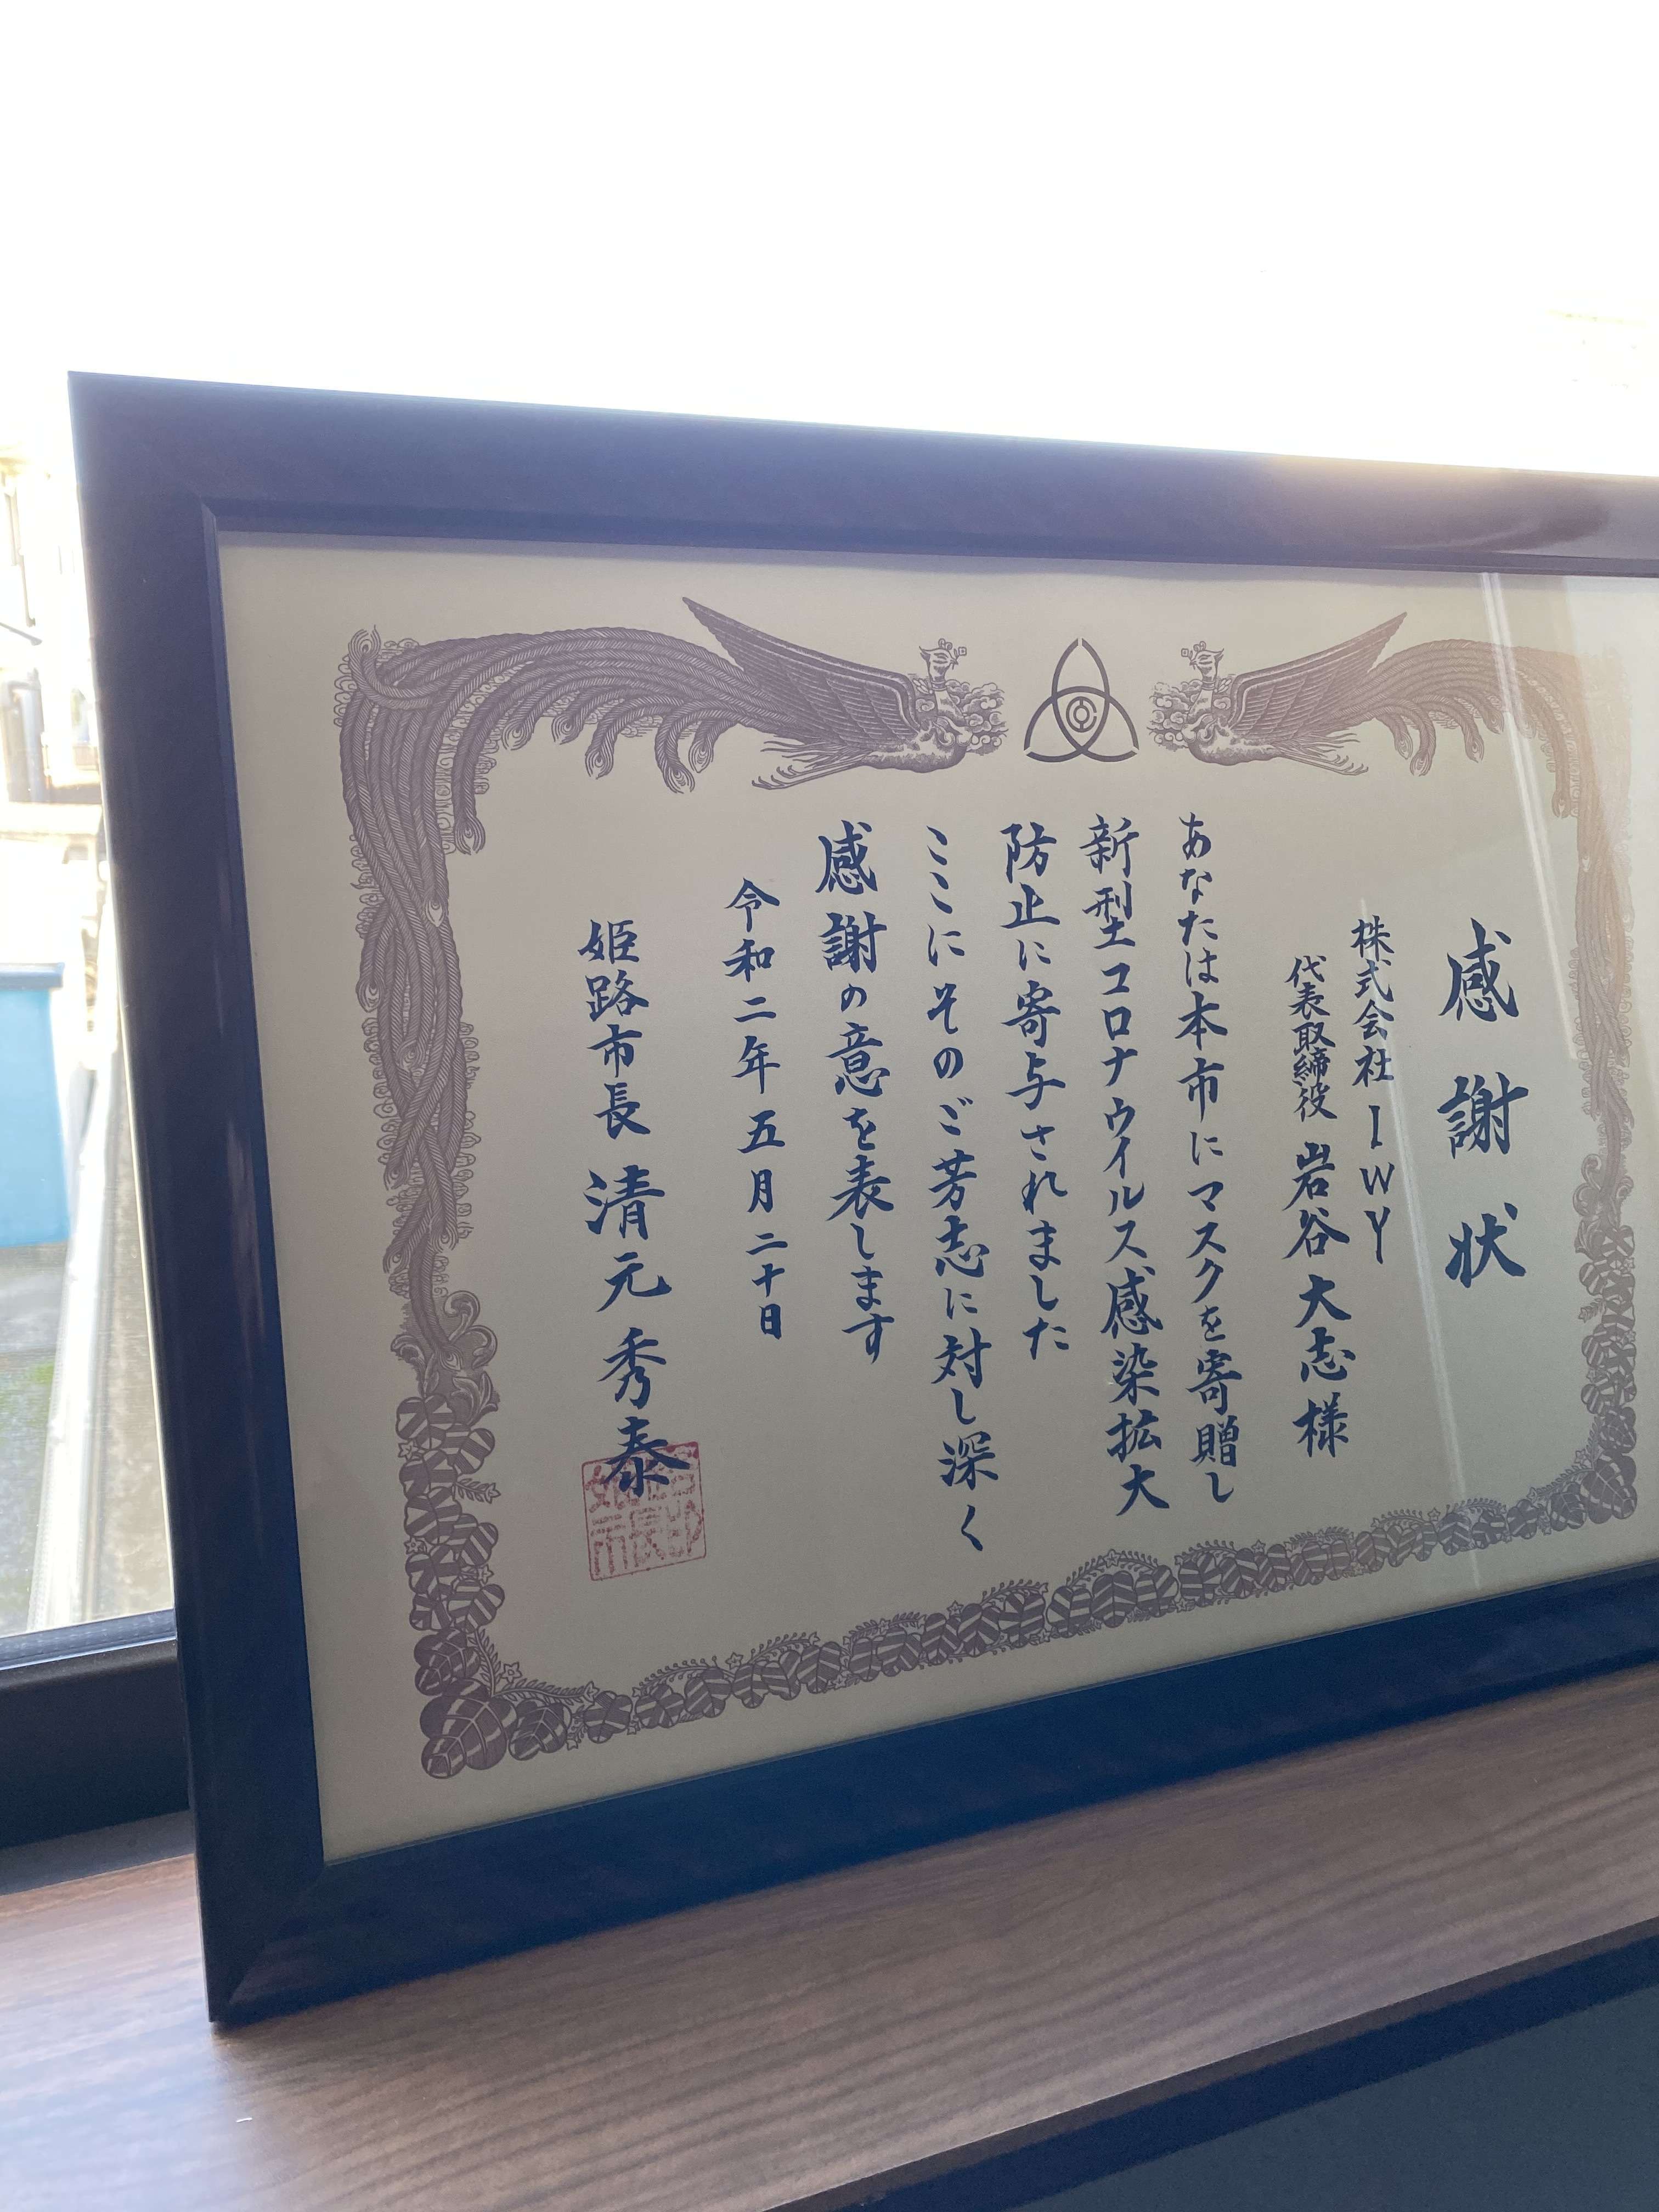 感謝状
株式会社IWY
代表取締役 岩谷大志様
あなたは本市にマスクを寄贈し
新型コロナウイルス感染拡大
防止に寄与されました
ここにそのご芳志に対し深く
感謝の意を表します
令和二年五月二十日
姫路市長 清元秀泰
姫路市長印